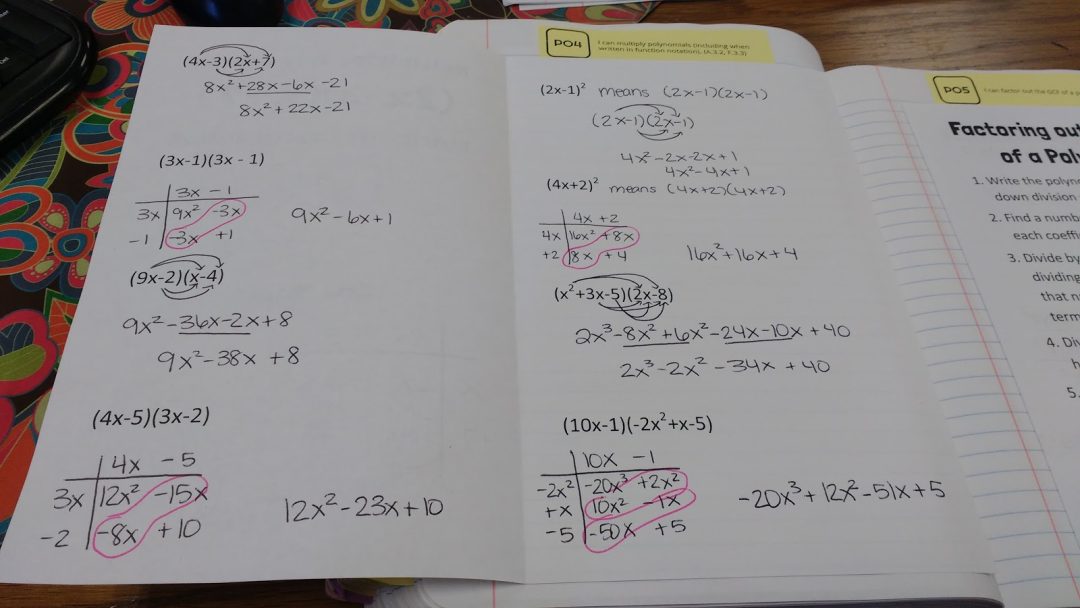 (4x-3)(2x+7)
8x²+28x-6x-21
8x²+22x-21
(3x-1)(3x - 1)
3x -1
3x 9x² -3x
-1 -3x +1
9x²-6x+1
(9x-2)(x-4)
9x²-36x-2x+8
9x²-38x+8
(4x-5)(3x-2)
4x -5
3x 12x² -15x
-2 -8x +10
12x²-23x+10
PO4
I can multiply polynomials (including when
written in function notation). (A.3.2, F.3.3)
(2x-1)² means (2x-1)(2x-1)
(2x-1)(2x-1)
4x²-2x-2x+1
4x²-4x+1
(4x+2)² means (4x+2)(4x+2)
4x +2
4x 16x² +8x
+2 8x +4
16x²+16x+4
(x²+3x-5)(2x-8)
2x³-8x²+6x²-24x-10x+40
2x³-2x²-34x+40
(10x-1)(-2x²+x-5)
10x -1
-2x² -20x³ +2x²
+x 10x² -1x
-5 -50x +5
-20x³+12x²-51x+5
PO5
I can factor out the GCF of a
Factoring ou
of a Pol
1. Write the polyn
down division
2. Find a numb
each coeffi
3. Divide by
dividing
that n
term
4. Di
5.